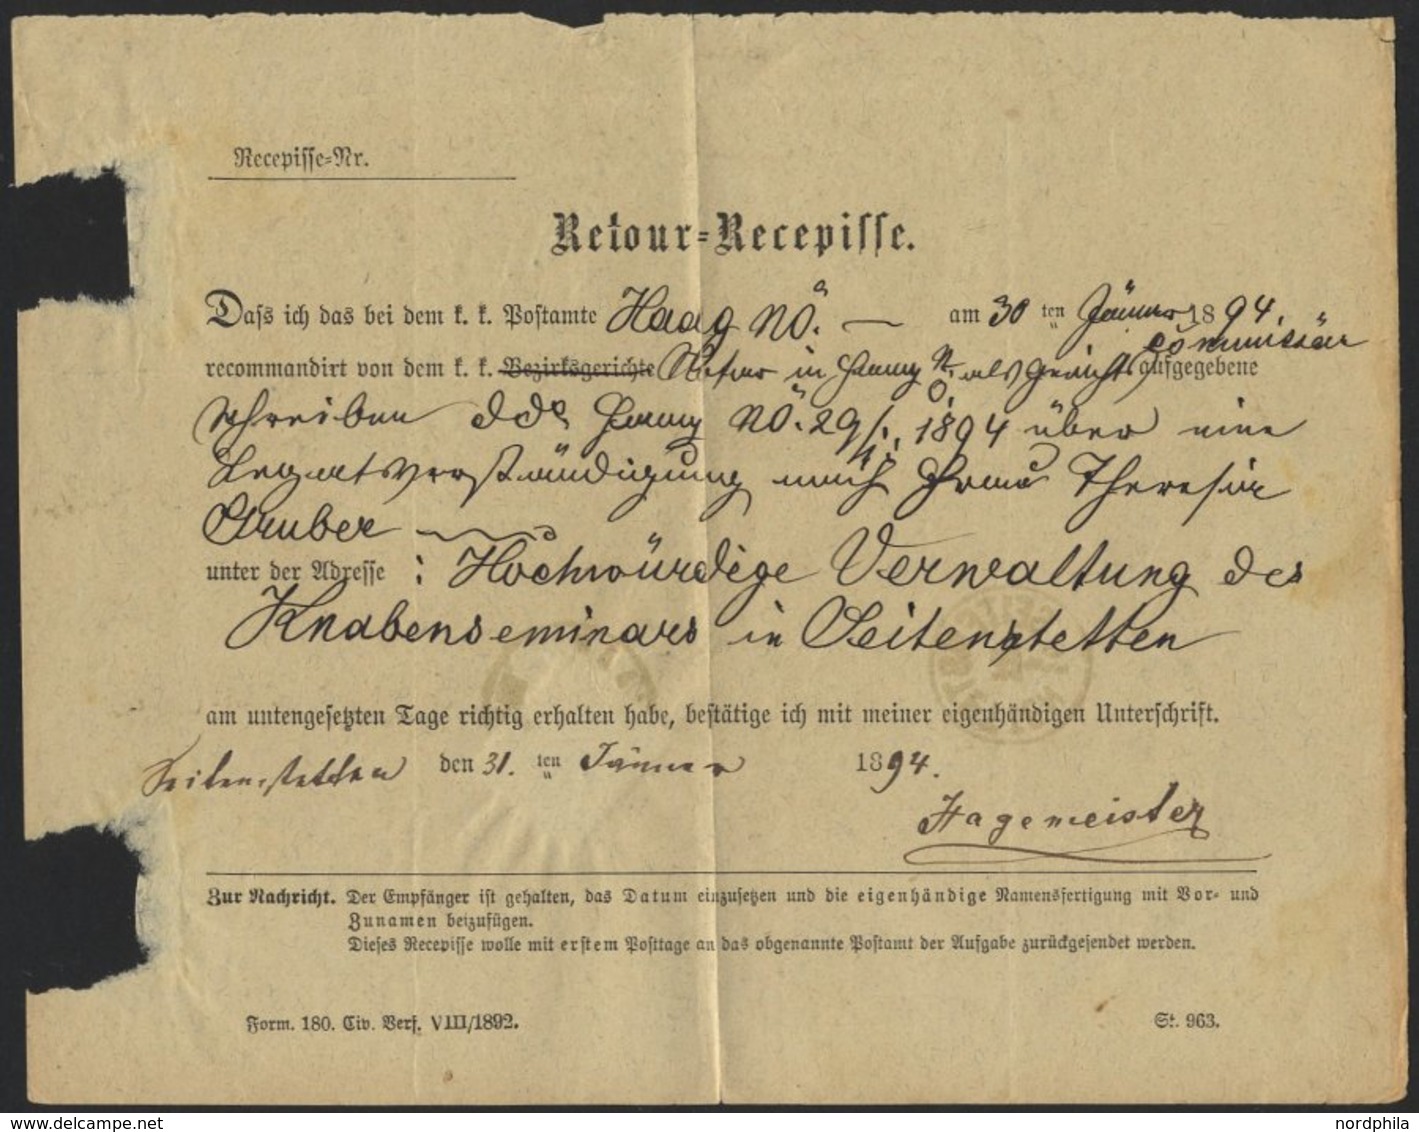 Recepisse-Nr.
Retour-Recepisse.
Dass ich das bei dem k. k. Postamte Haag NÖ. — am 30 ten Jänner 1894.
recommandirt von dem k. k. Bezirksgerichte Notar in Haag N.Ö. als Gerichtscommissär aufgegebene
Schreiben ddo Haag NÖ. 29/1. 1894 über eine
Legatsverständigung nach Frau Theresia
Gruber
unter der Adresse : Hochwürdige Verwaltung des
Knabenseminars in Seitenstetten
am untengesetzten Tage richtig erhalten habe, bestätige ich mit meiner eigenhändigen Unterschrift.
Seitenstetten den 31. ten Jänner 1894.
Hagemeister
Zur Nachricht. Der Empfänger ist gehalten, das Datum einzusetzen und die eigenhändige Namensfertigung mit Vor- und
Zunamen beizufügen.
Dieses Recepisse wolle mit erstem Posttage an das obgenannte Postamt der Aufgabe zurückgesendet werden.
Form. 180. Civ. Verf. VIII/1892. St. 963.
www.delcampe.net nordphila